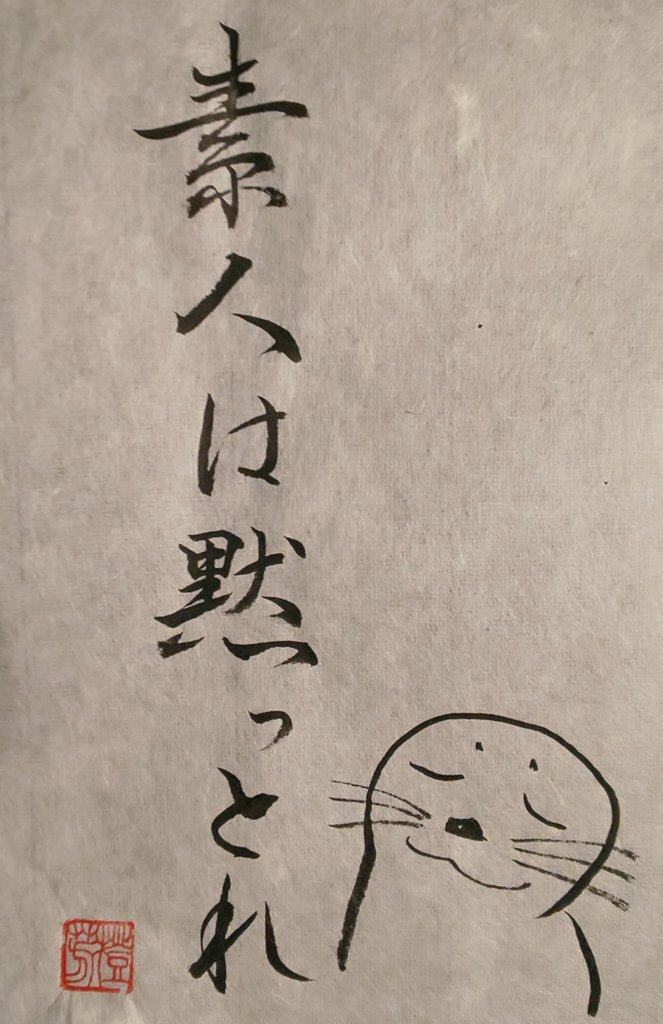 素人は黙っとれ